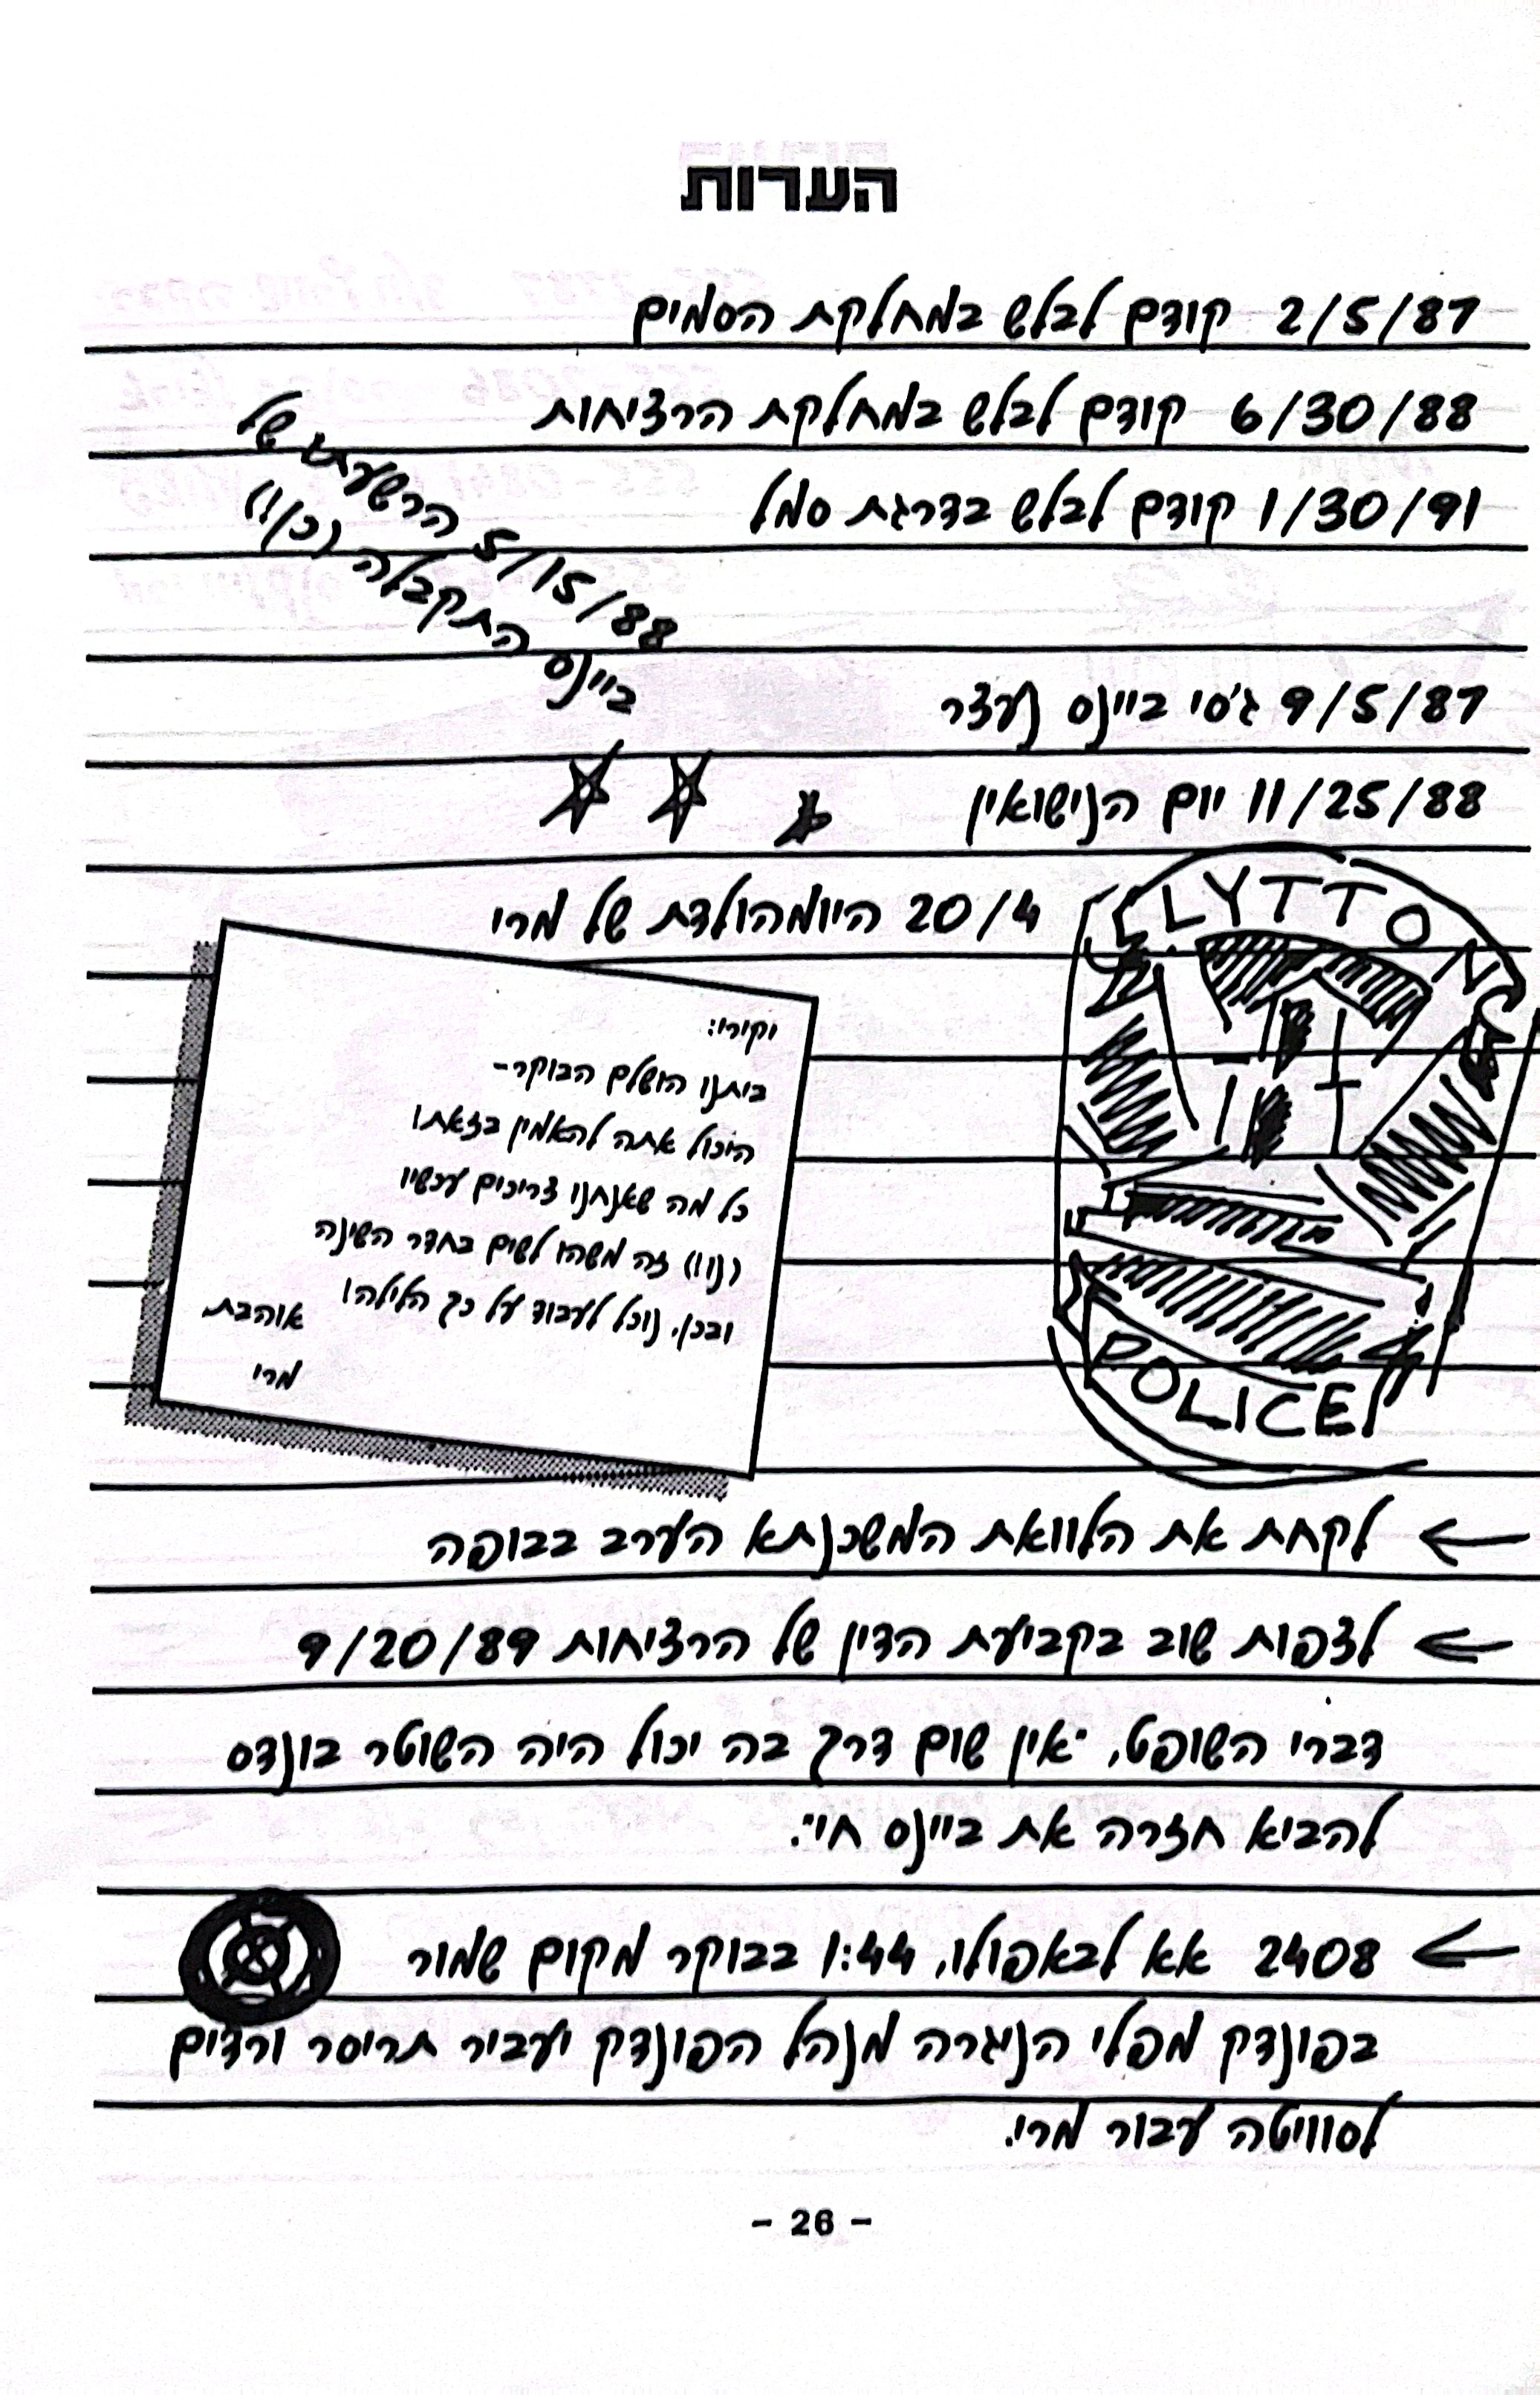 הערות
2/5/87 קודם לבלש במחלקת הסמים
6/30/88 קודם לבלש במחלקת הרציחות
1/30/91 קודם לבלש בדרגת סמל
5/15/88 הרשעתו של
ביינס התקבלה (כן!!)
9/5/87 ג'סי ביינס נעצר
11/25/88 יום הנישואין
20/4 היומהולדת של מרי
LYTTON
POLICE
יקירי:
ביתנו הושלם הבוקר-
היכול אתה להאמין בזאת!
כל מה שאנחנו צריכים עכשיו
(נו!!) זה משהו לשים בחדר השינה
ובכן, נוכל לעבוד על כך הלילה!
אוהבת
מרי
לקחת את הלוואת המשכנתא הערב בבופה
לצפות שוב בקביעת הדין של הרציחות 9/20/89
דברי השופט, "אין שום דרך בה יכול היה השוטר בונדס
להביא חזרה את ביינס חי".
2408 אא לבאפולו, 1:44 בבוקר מקום שמור
בפונדק מפלי הניגרה מנהל הפונדק יעביר תריסר ורדים
לסוויטה עבור מרי.
- 26 -